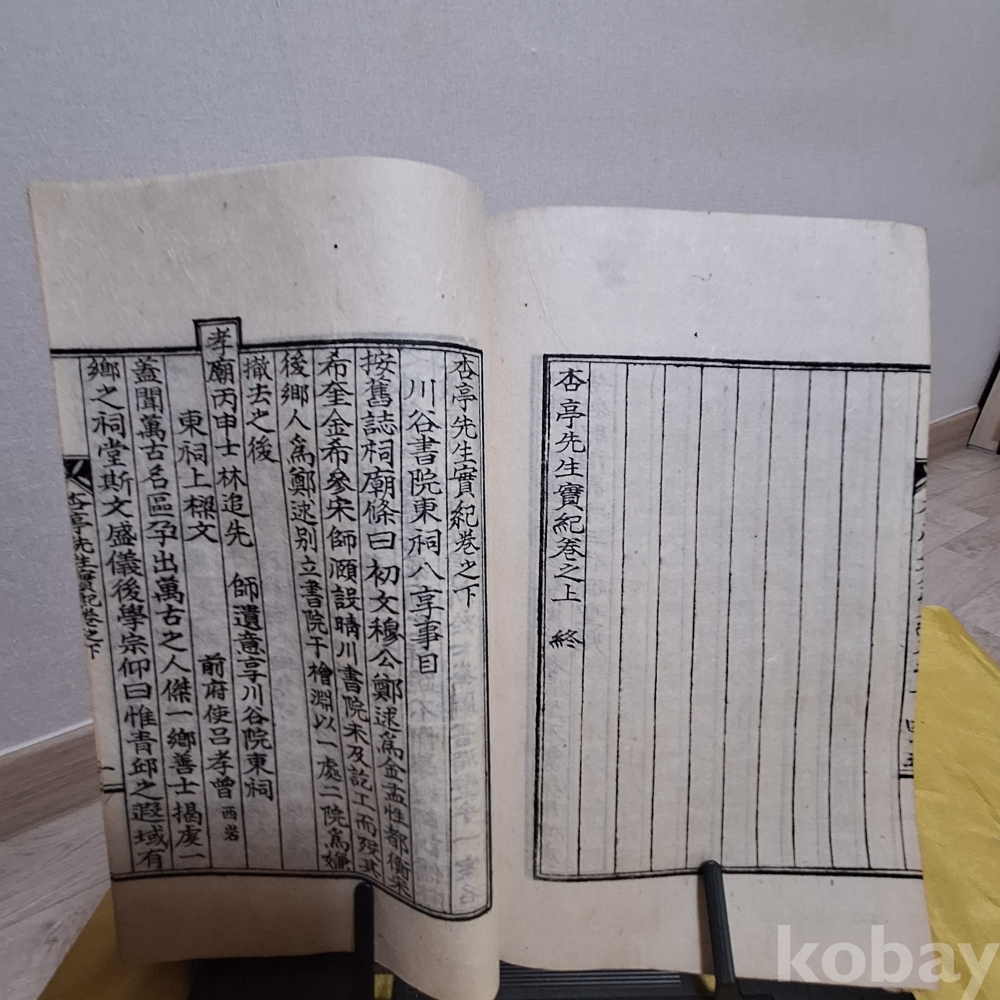 杏亭先生實紀卷之上 終
杏亭先生實紀卷之下
川谷書院東祠八享事目
按舊誌祠廟條曰初文穆公鄭逑爲金孟性都衡宋
希奎金希參宋師頤設晴川書院未及訖工而歿其
後鄉人爲鄭逑别立書院于檜淵以一處二院爲嫌
撤去之後
孝廟丙申士林追先 師遺意享川谷院東祠
東祠上樑文 前府使呂孝曾 西岩
蓋聞萬古名區孕出萬古之人傑一鄉善士揭虔一
鄉之祠堂斯文盛儀後學宗仰曰惟青邱之遐域有
杏亭先生實紀卷之下 一
kobay